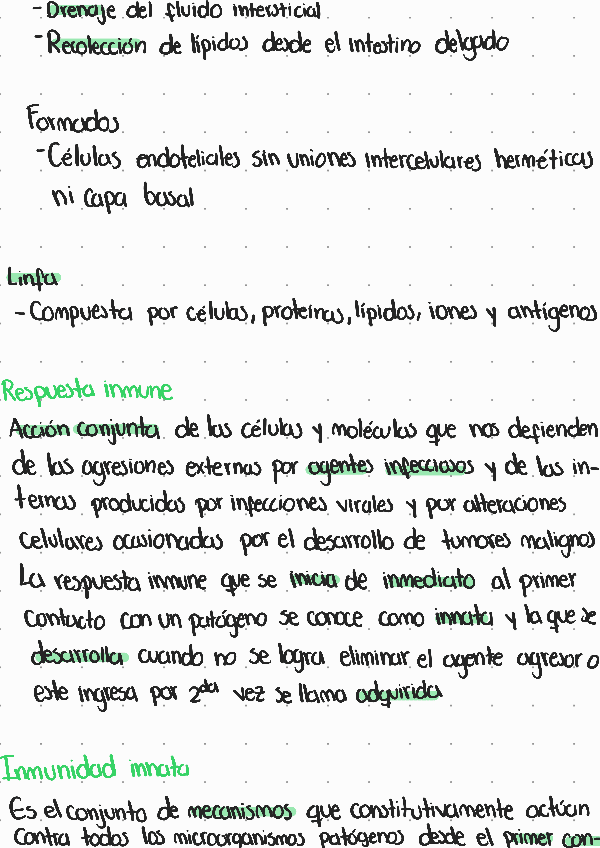 - Drenaje del fluido intersticial
- Recolección de lípidos desde el intestino delgado
Formados
- Células endoteliales sin uniones intercelulares herméticas
ni capa basal
Linfa
- Compuesta por células, proteínas, lípidos, iones y antígenos
Respuesta inmune
Acción conjunta de las células y moléculas que nos defienden
de las agresiones externas por agentes infecciosos y de las in-
ternas producidas por infecciones virales y por alteraciones
celulares ocasionadas por el desarrollo de tumores malignos
La respuesta inmune que se inicia de inmediato al primer
contacto con un patógeno se conoce como innata y la que se
desarrolla cuando no se logra eliminar el agente agresor o
este ingresa por 2da vez se llama adquirida
Inmunidad innata
Es el conjunto de mecanismos que constitutivamente actúan
contra todos los microorganismos patógenos desde el primer con-